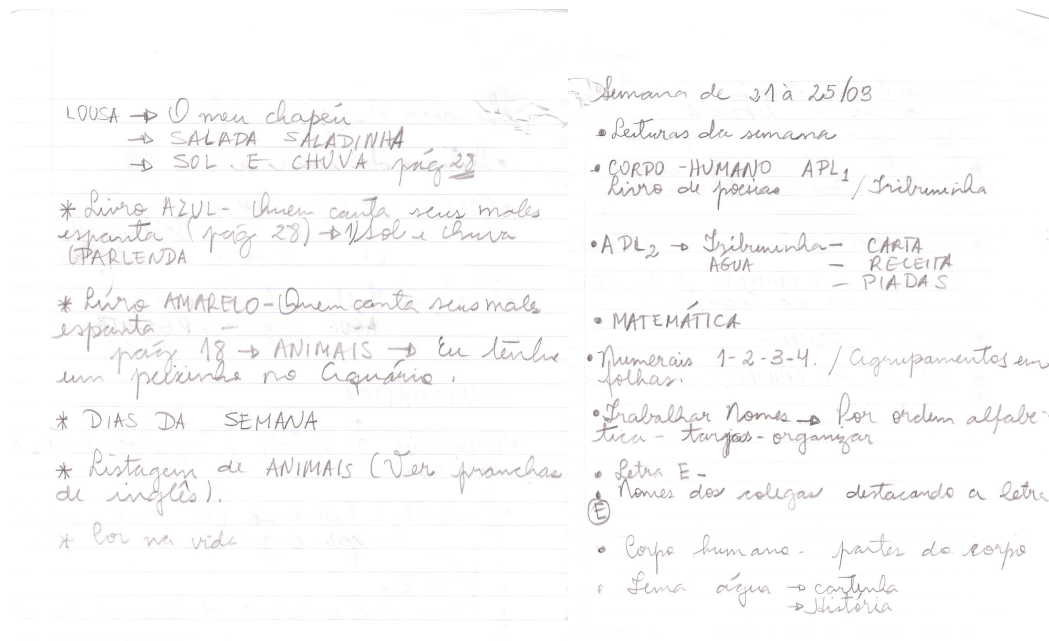 LOUSA → O meu chapéu
→ SALADA SALADINHA
→ SOL E CHUVA pág 28
* Livro AZUL - Quem canta seus males
espanta (pág 28) → Sol e chuva
(PARLENDA
* Livro AMARELO - Quem canta seus males
espanta -
pág 18 → ANIMAIS → Eu tenho
um peixinho no Aquário.
* DIAS DA SEMANA
* Listagem de ANIMAIS (Ver pranchas
de inglês).
* Cor na vida
Semana de 21 à 25/03
• Leituras da semana
• CORDO-HUMANO APL1
Livro de poesias / Tribuninha
• APL2 → Tribuninha - CARTA
ÁGUA - RECEITA
- PIADAS
• MATEMÁTICA
• Numerais 1-2-3-4. / Agrupamentos em
folhas.
• Trabalhar Nomes → Por ordem alfabe-
tica - tarjas - organizar
• Letra E -
• Nomes dos colegas destacando a letra
E
• Corpo humano - partes do corpo
• Tema água → cartinha
→ História